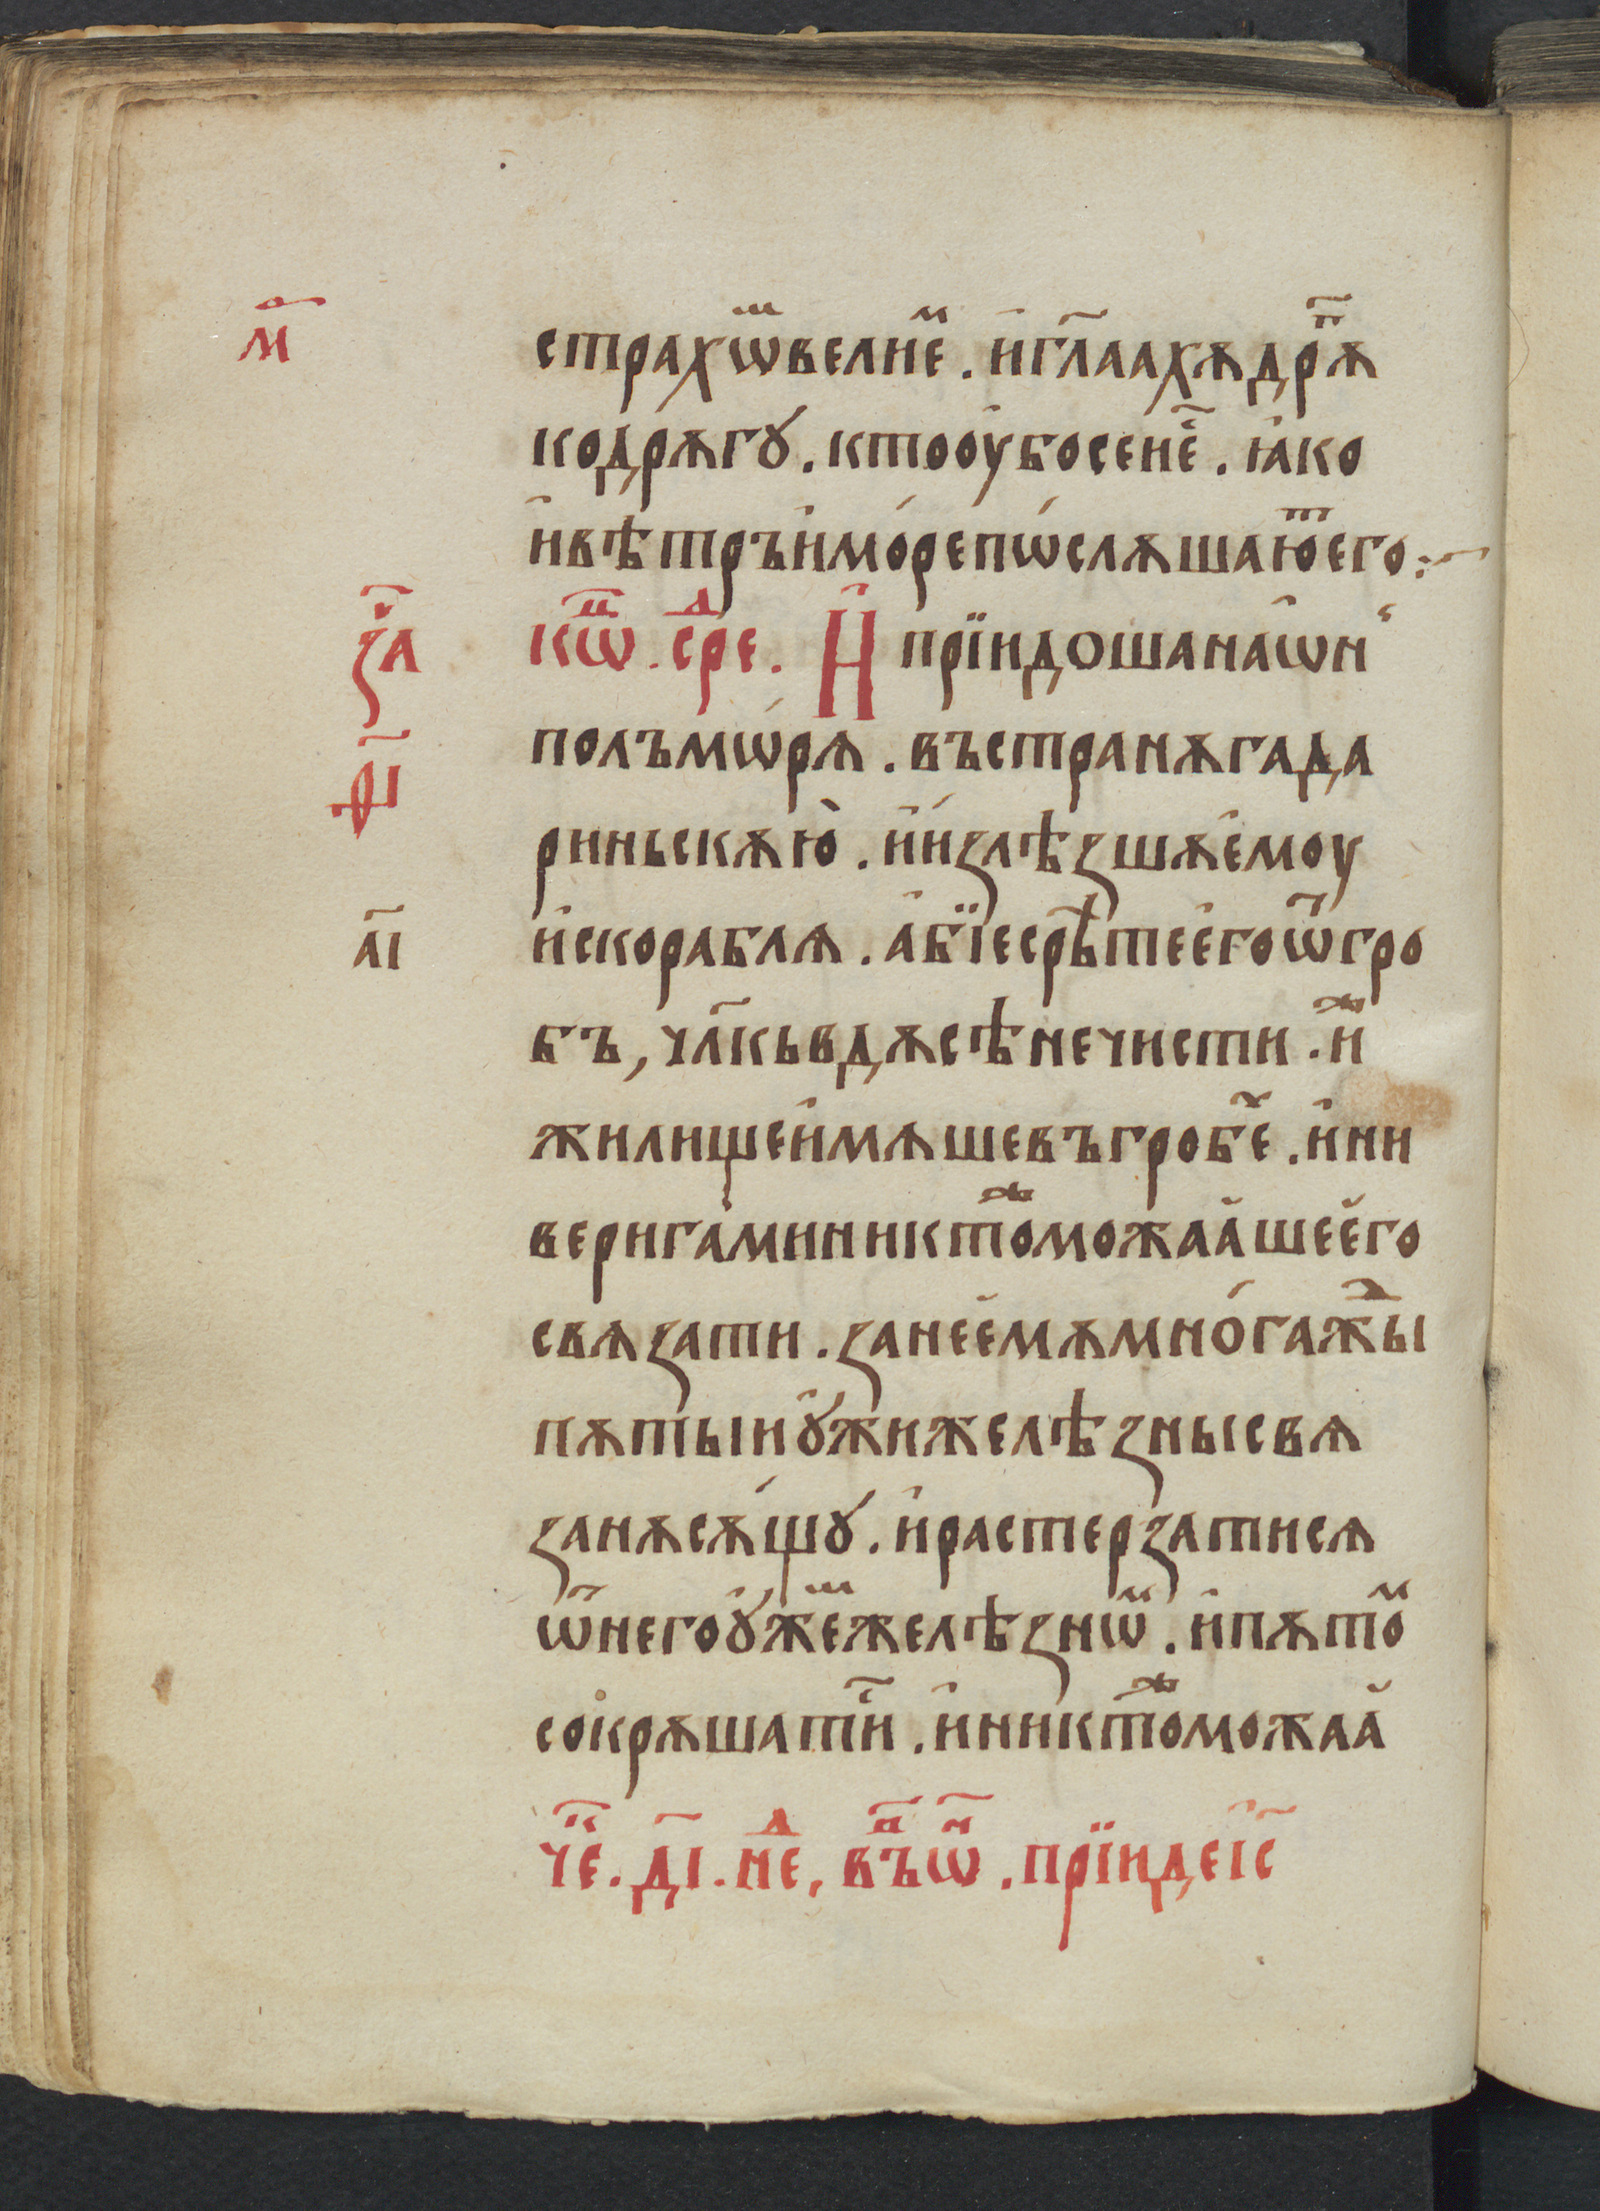 м҃
страхѡⷨвелиеⷨ. и҆гл҃аахѫдрѫⷢ҇
кодрѫгꙋ. ктооу҆босенеⷭ҇. ꙗ҆ко
и҆вѣтръи҆мо́репѡ́слѫшаюⷮего:~
за҃ кѡⷩ҇. среⷣ. И҆ прїидошана́ѡн
ф҃і
полъмѡ́рѧ. въстранѫгада
риньскѫю̀. и҆и҆злѣзшѫе҆моу
а҃і
и҆скораблѧ. а҆бїесрѣ́тее҆гоѿгро
бъ, чл҃кьвдѫсѣнечисти. иⷤ
жилищеи҆мѧшевъгробеⷯ. и҆ни
верига́миниктоⷤможаа҆шее҆го
свѧзати. занее҆мѫмно́гажⷣы
пѫтыи҆ꙋ҆жижелѣзнысвѧ
занѫсѫ́щꙋ. и҆растерзатисѧ
ѿнегоꙋ҆жеⷨжелѣзнѡⷨ. и҆пѫтоⷨ
сокрѫшатиⷭ҇. и҆никтоⷤможаа҆
чеⷦ҇. д҃і. неⷣ, въⷩ҇ѡⷩ҇. прїидеі҆с҃
м҃